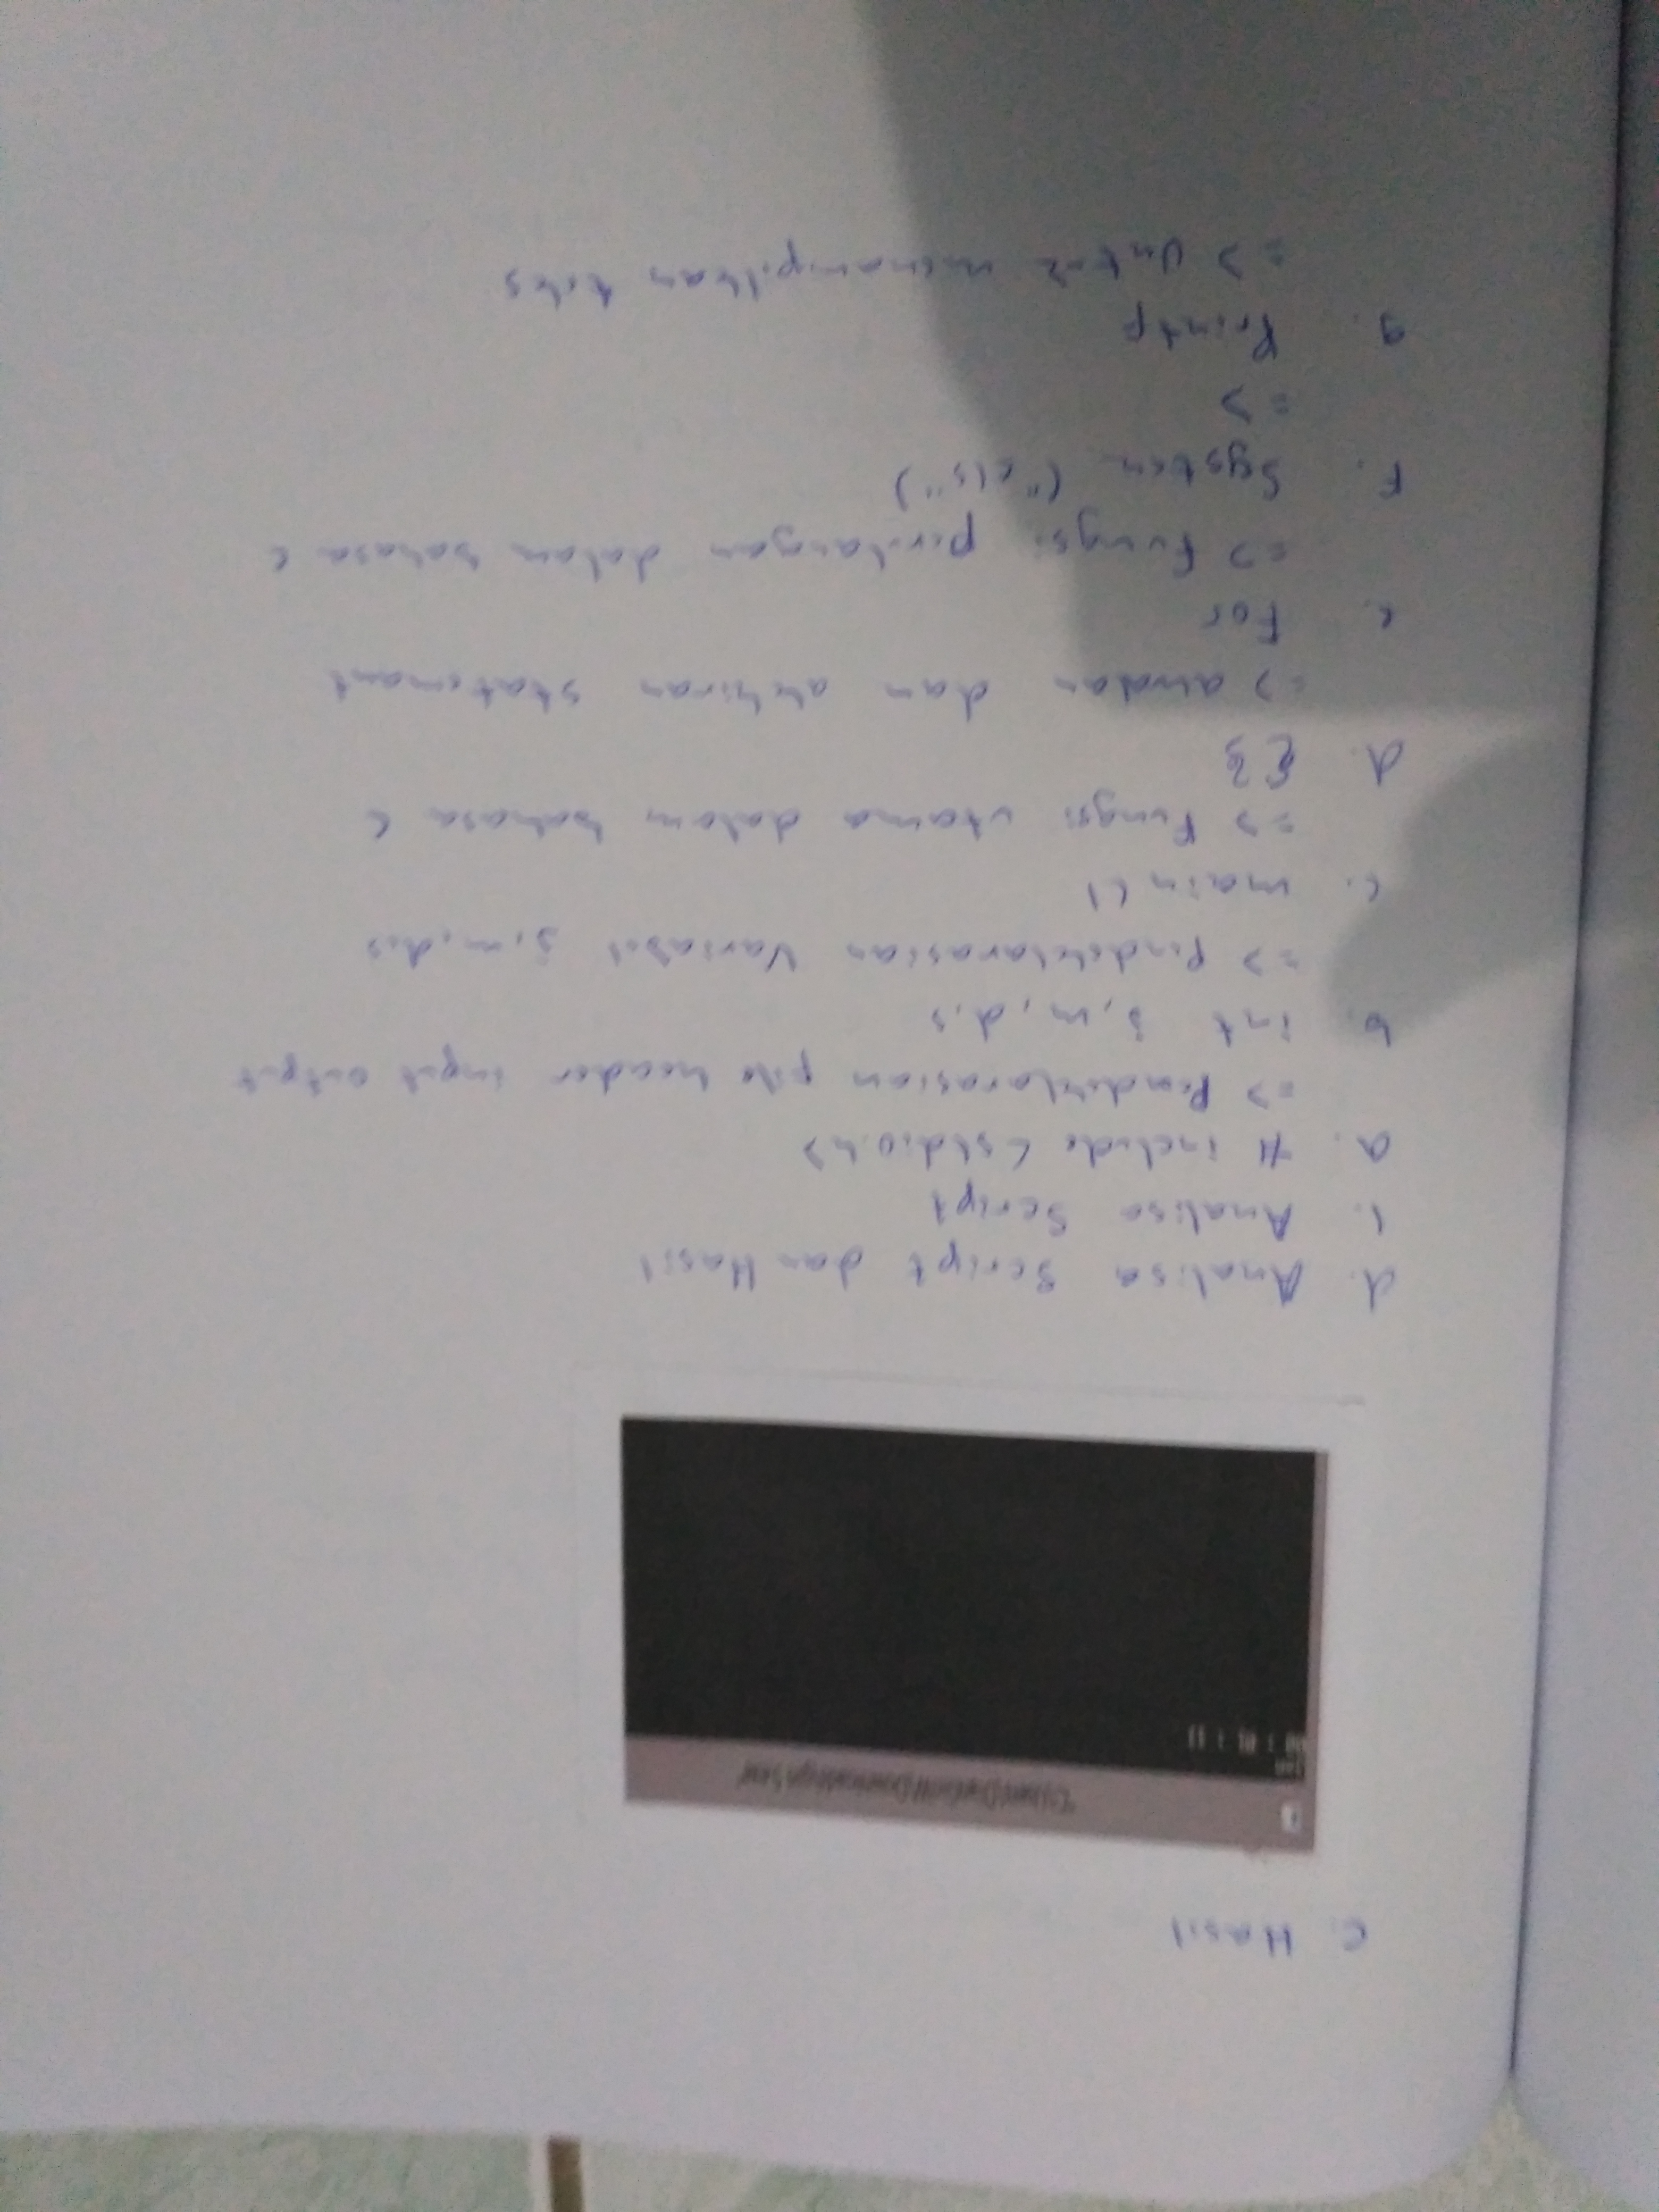 C. Hasil
JAM
00 : 01 : 13
d. Analisa Script dan Hasil
1. Analisa Script
a. # include <stdio.h>
=> Pendeklarasian file header input output
b. int j, m, d, s
=> Pendeklarasian Variabel j, m, d, s
c. main ()
=> Fungsi utama dalam bahasa C
d. { }
=> awalan dan akhiran statemant
e. For
=> Fungsi perulangan dalam bahasa C
F. System ("cls")
=>
g. Printf
=> Untuk menampilkan teks